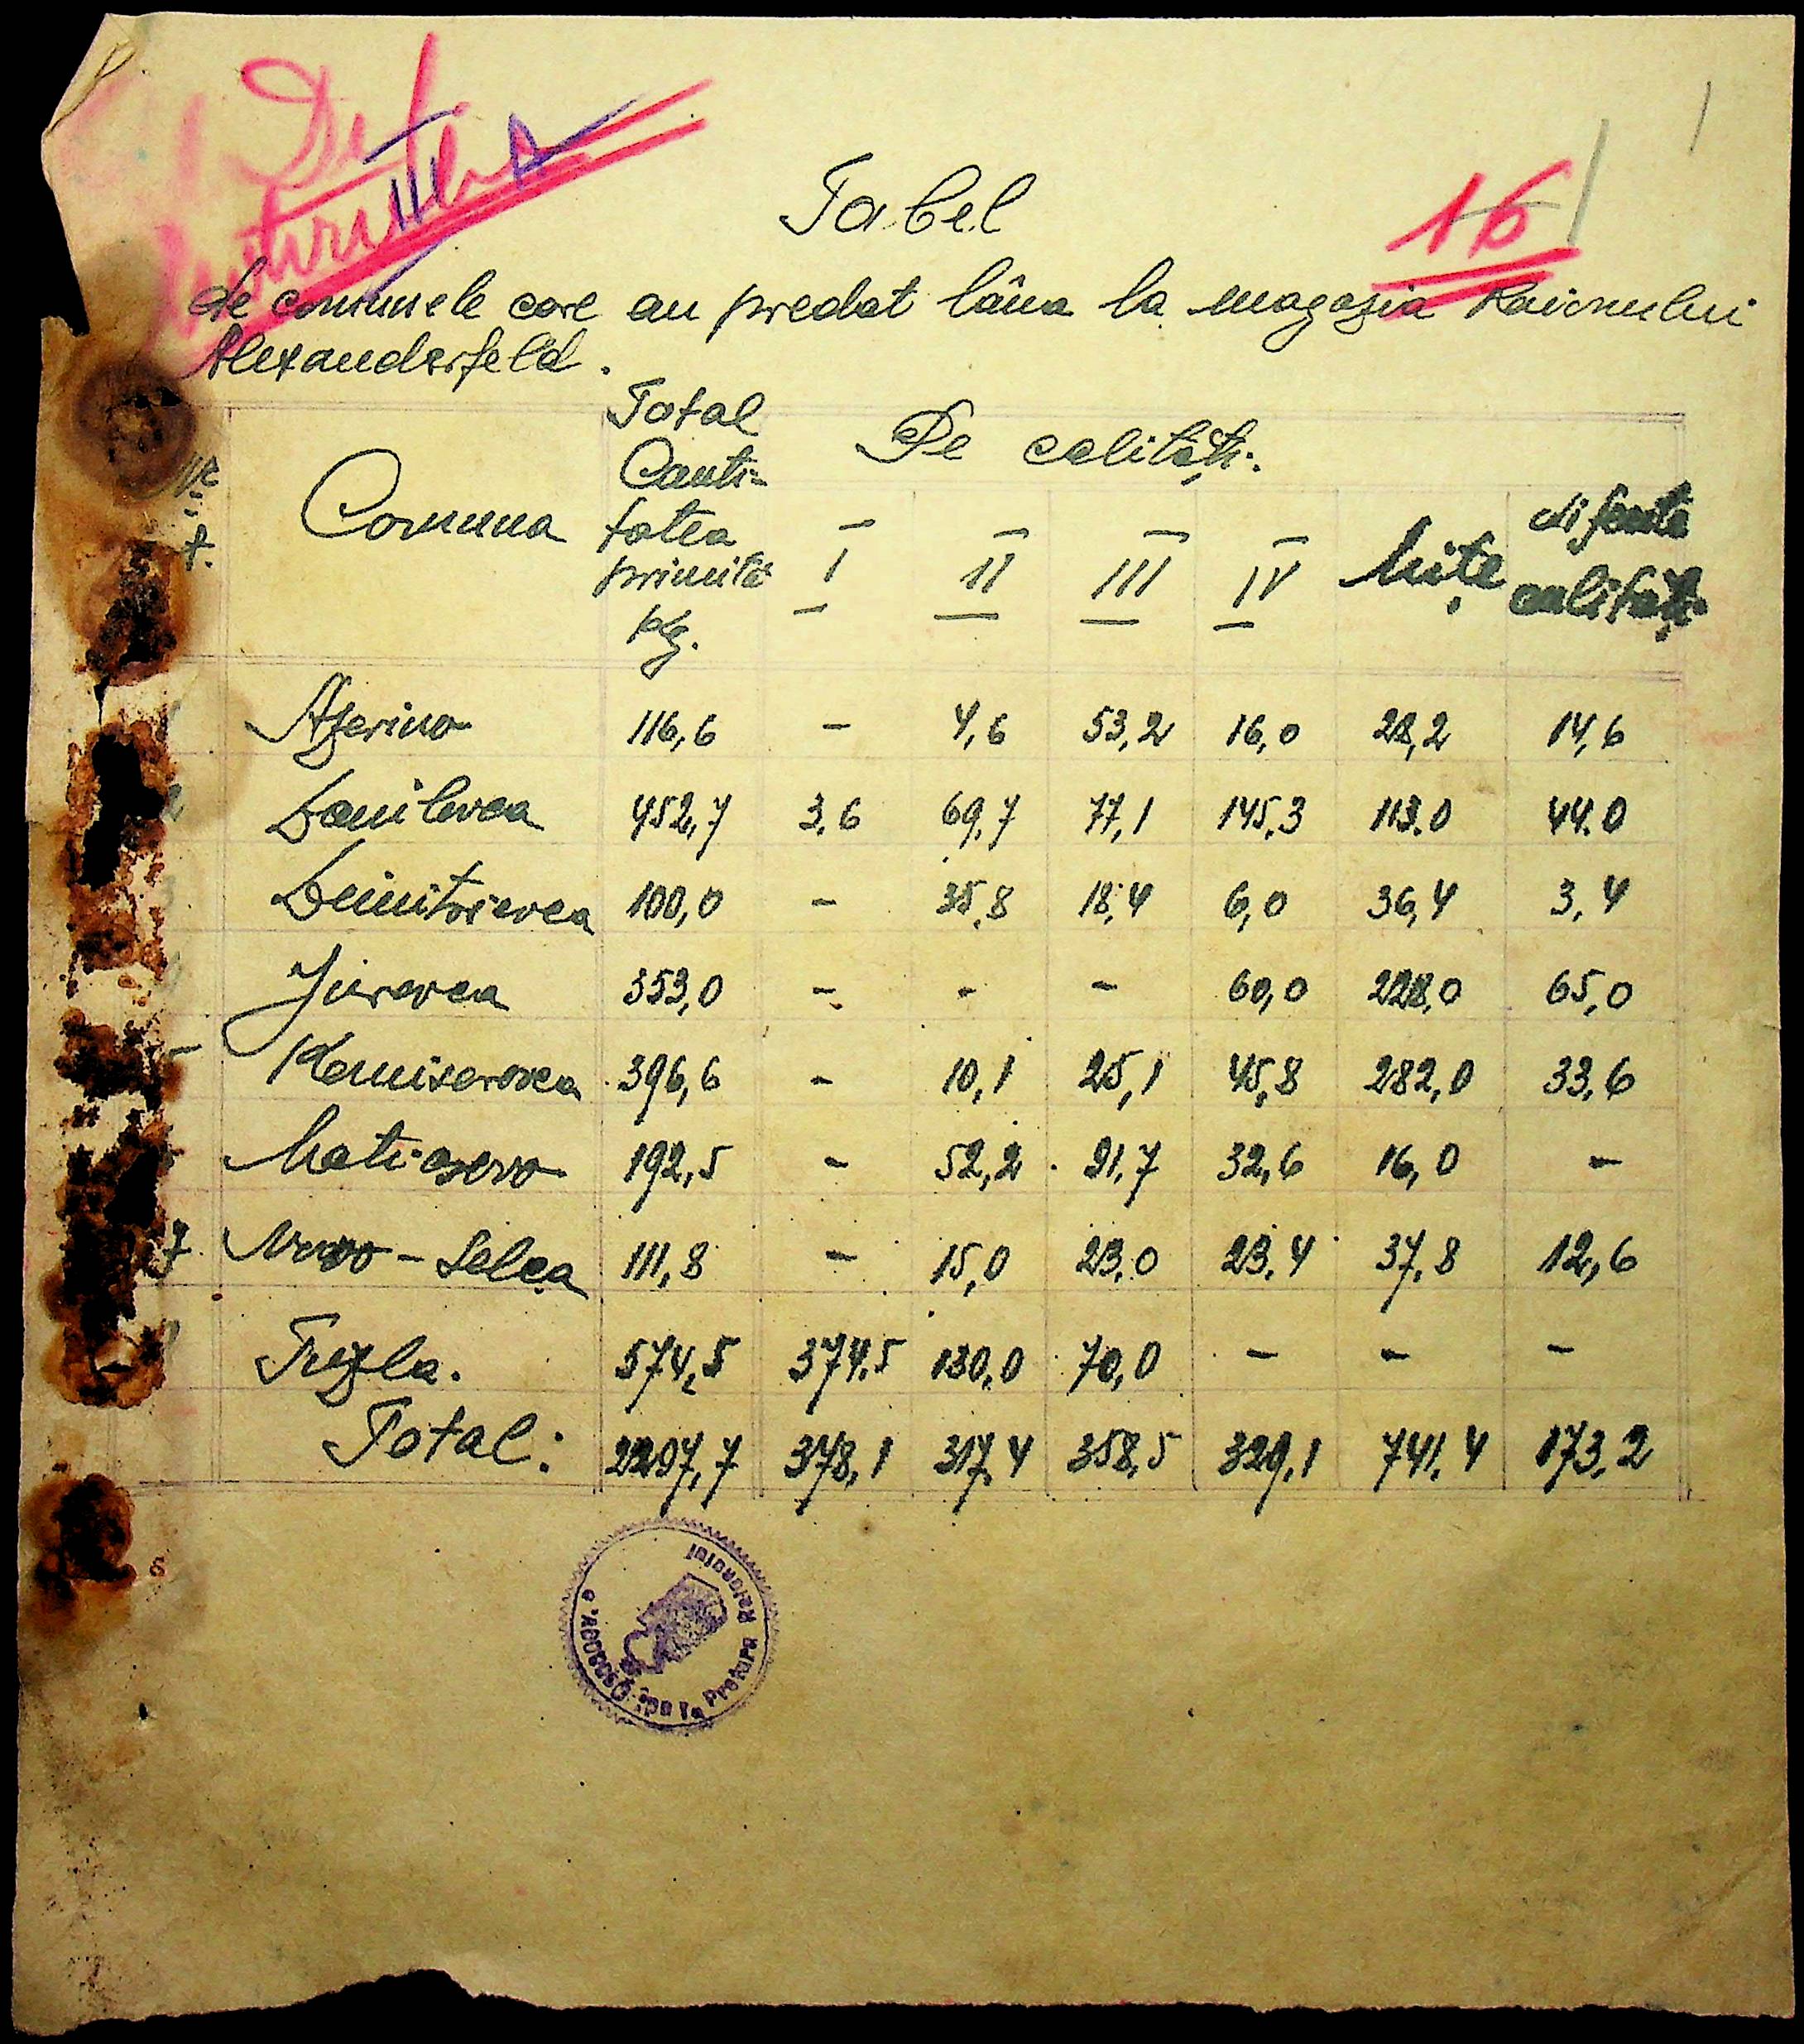 16
Tabel
de comunele care au predat lâna la magazia Raionului
Alexanderfeld.
Nr.
Comuna
Total
Canti-
tatea
primită
kg.
Pe calități.
I II III IV Mițe diferite
calități
Azerino 116,6 - 4,6 53,2 16,0 28,2 14,6
Danilovca 452,7 3,6 69,7 77,1 145,3 113.0 44.0
Dimitrievca 100,0 - 35,8 18,4 6,0 36,4 3,4
Jurevca 353,0 - - - 60,0 228,0 65,0
Komisarovca 396,6 - 10,1 25,1 45,8 282,0 33,6
Matiasovo 192,5 - 52,2 91,7 32,6 16,0 -
7. Novo-Selca 111,8 - 15,0 23,0 23,4 37,8 12,6
Trizla. 574,5 374,5 130,0 70,0 - - -
Total: 2297,7 378,1 317,4 358,5 329,1 741,4 173,2
Pretura Raionului